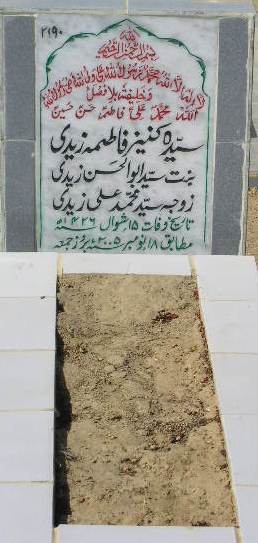 ۲۱۹۰
اللہ
بسم اللہ الرحمن الرحیم
لا الہ الا اللہ محمد رسول اللہ علی ولی اللہ وصی رسول اللہ
وخلیفتہ بلا فصل
اللہ محمد علی فاطمہ حسن حسین
سیدہ کنیز فاطمہ زیدی
بنت سید ابوالحسن زیدی
زوجہ سید محمد علی زیدی
تاریخ وفات ۱۵ شوال ۱۴۲۶ھ
مطابق ۱۸ نومبر ۲۰۰۵ء بروز جمعہ